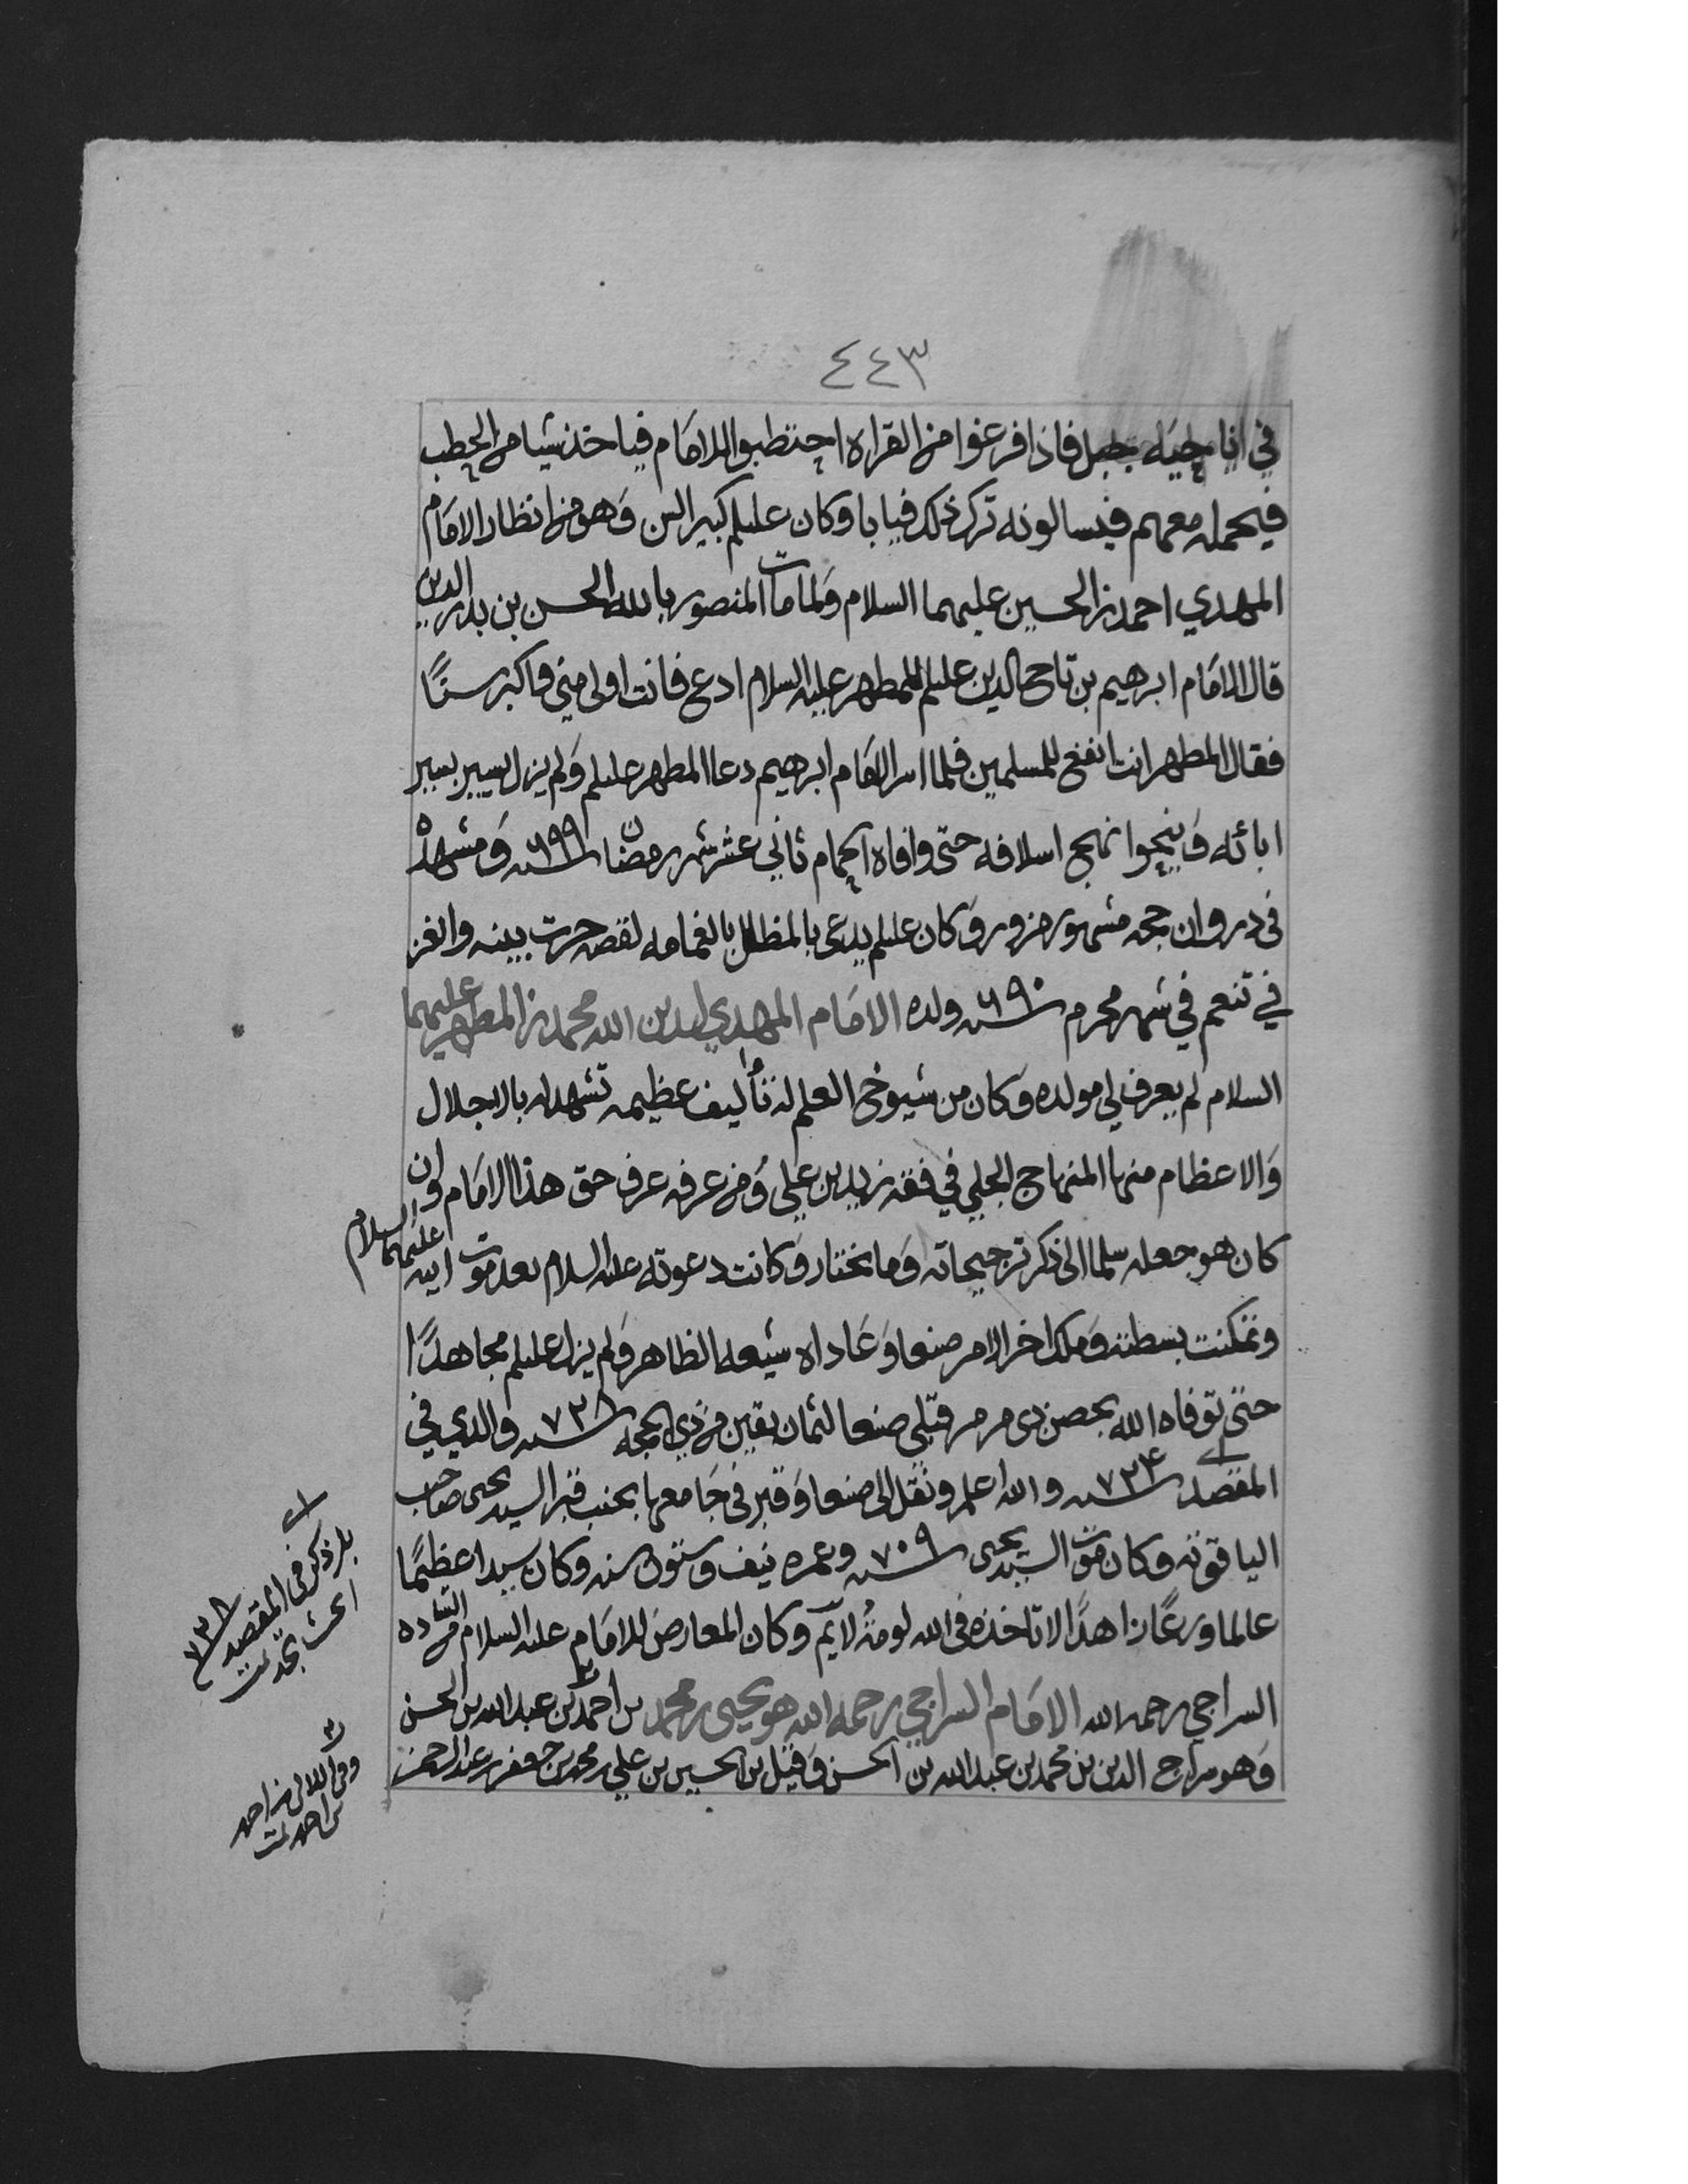 ٤٤٣
في اناحيه جبل فاذا فرغوا من القراه احتطبوا للامام فياخذ شيا من الحطب
فيحمله معهم فيسالونه ترك ذلك فيابا وكان عليلم كبير السن وَهو من انظار الامَام
المهدي احمد بن الحسين عليهما السلام وَلما مات المنصور بالله الحسن بن بدر الدين
قال الامَام ابرهيم بن تاج الدين عليلم للمطهر عليه السلام ادع فانت اولى مني وَاكبر سنًّا
فقال المطهر انت انفع للمسلمين فلما اسر الامَام ابرهيم دعا المطهر عليلم وَلم يزل يسير بسير
ابائه وَينحوا نهج اسلافه حتى وافاه الحمام ثاني عشر شهر رمضان سنه ٦٩٩ وَمشهده
في دروان حجه مشهور مزور وَكان عليلم يدعى بالمظلل بالغمامه لقصه جرت بينه والغز
في تنعم في شهر محرم سنه ٦٩٠ ولده الامَام المهدي لدين الله محمد بن المطهر عليهما
السلام لم يعرف لي مولده وَكان من شيوخ العلم له تأليف عظيمه تشهد له بالاجلال
وَالاعظام منها المنهاج الجلي في فقه زيد بن علي وَمن عرفه عرف حق هذا الامَام وَان
كان هو جعله سلما الى ذكر ترجيحاته وَما يختار وَكانت دعوته عليه السلام بعد موت ابيه عليهما السلام
وتمكنت بسطته وَملك اخر الامر صنعا وَعَاداه شيعه الظاهر وَلم يزل عليلم مجاهدًا
حتى توفاه الله بحصن ذي مرمر قبلي صنعا لثمان بقين من ذي الحجه سنه ٧٢٨ والذي في
المقصد سنه ٧٢٤ والله اعلم ونقل الى صنعا وَقبر في جَامعها بجنب قبر السيد يحيى صاحب
الياقوته وكان موت السيد يحيى سنه ٧٠٩ وعمره نيف وستون سنه وكان سيدا عظيمًا
عالما ورعًا زاهدًا لا تاخذه في الله لومةُ لايم وكان المعارض للامَام عليه السلام من الساده
السراجي رحمه الله الامَام السراجي رحمه الله هو يحيى بن محمد بن احمد بن عبد الله بن الحسن
وَهو سراج الدين بن محمد بن عبد الله بن الحسن وَقيل بن الحسين بن علي بن محمد بن جعفر بن عبد الرحمن
بل ذكر في المقصد ٧٢٨
وفي اللالي بن احمد
بن احمد تمت